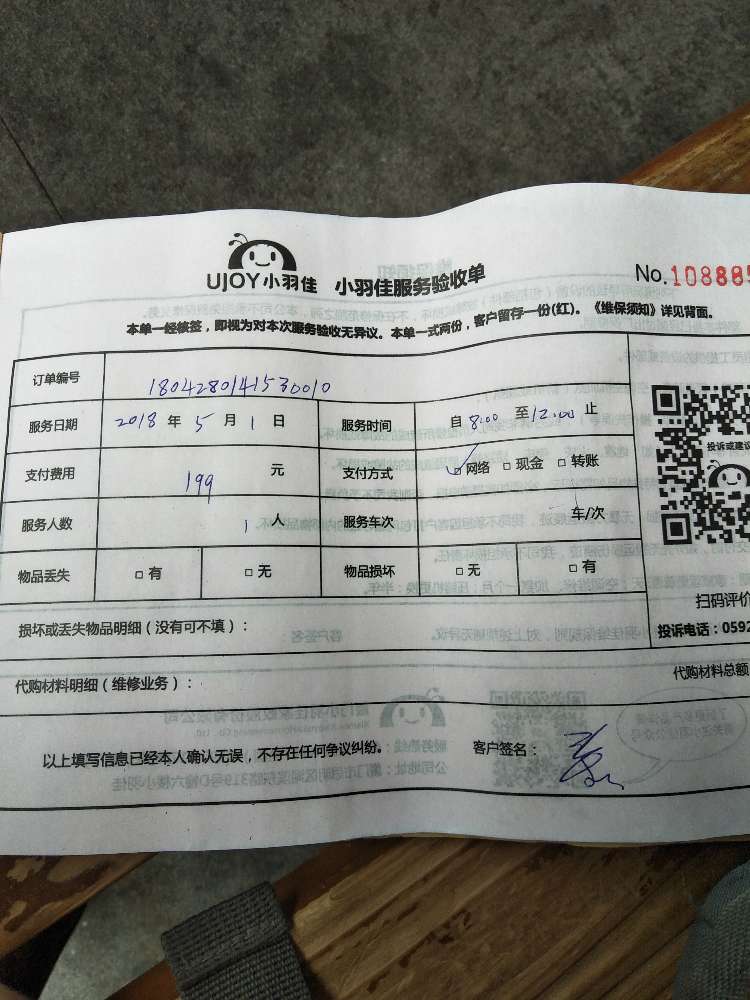 UJOY小羽佳 小羽佳服务验收单 No.108885
本单一经核签，即视为对本次服务验收无异议。本单一式两份，客户留存一份(红)。《维保须知》详见背面。
订单编号 1804280141530010
服务日期 2018 年 5 月 1 日 服务时间 自 8:00 至 12:00 止
投诉或建议
支付费用 199 元 支付方式 ☑网络 □现金 □转账
服务人数 1 人 服务车次 车/次
物品丢失 □有 □无 物品损坏 □无 □有
扫码评价
损坏或丢失物品明细（没有可不填）： 投诉电话：0592
代购材料明细（维修业务）： 代购材料总额
以上填写信息已经本人确认无误，不存在任何争议纠纷。 客户签名：